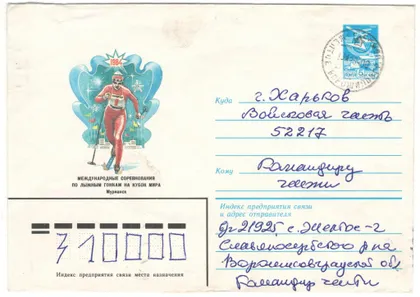 1984
МЕЖДУНАРОДНЫЕ СОРЕВНОВАНИЯ
ПО ЛЫЖНЫМ ГОНКАМ НА КУБОК МИРА
Мурманск
Куда
г. Харьков
Войсковая часть
52217
Кому
Командиру
части
Индекс предприятия связи
и адрес отправителя
с. Желтое-2
Славяносербского р-на
Ворошиловградской об
Командир части
310000
Индекс предприятия связи места назначения